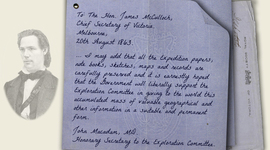 To The Hon. James McCulloch,
Chief Secretary of Victoria
Melbourne,
20th August 1863
... we may add that all the Expedition papers,
note books, sketches, maps and records are
carefully preserved and it is earnestly hoped
that the Government will liberally support the
Exploration Committee in giving to the world this
accumulated mass of valuable geographical and
other information in a suitable and permanent
form.
John Macadam, MD.
Honorary Secretary to the Exploration Committee.